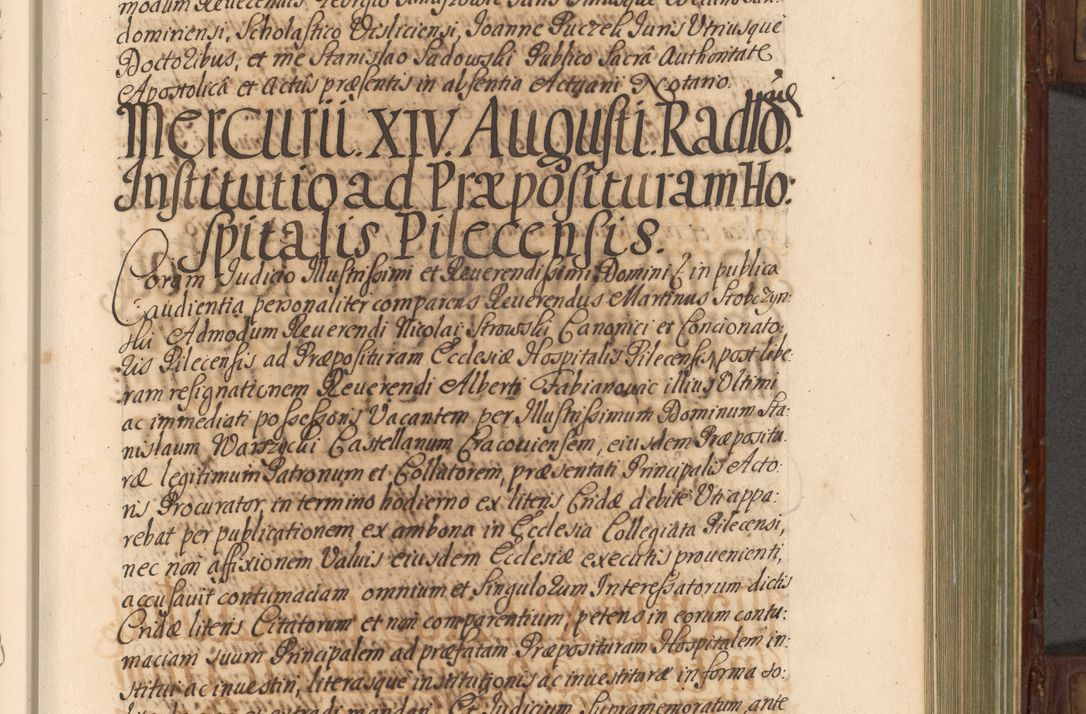 modum Reverendis, Georgio
dominensi, Scholastico Visliciensi, Joanne Puczek Juris Utriusque
Doctoribus, et me Stanislao Sadowski Publico Sacrâ Authoritate
Apostolicâ et Actûs præsentis in absentia Actuarii Notario.
Mercurii. XIV. Augusti. Radłō.
Institutio ad Præposituram Ho:
spitalis Pilecensis.
Coram Judicio Illustrissimi et Reverendissimi Domini & in publica
audientia personaliter comparens Reverendus Martinus Stobczyn:
ski Admodum Reverendi Nicolai Srowski Canonici et Concionato:
ris Pilecensis ad Præposituram Ecclesiæ Hospitalis Pilecensis, post libe:
ram resignationem Reverendi Alberti Fabianowic illius Ultimi
ac immediati possessoris Vacantem per Illustrissimum Dominum Sta:
nislaum Warszycki Castellanum Cracoviensem, eiusdem Præpositu:
ræ legitimum Patronum et Collatorem, præsentati Principalis Acto:
ris Procurator, in termino hodierno ex literis Cridæ debitè Uti appa:
rebat per publicationem ex ambona in Ecclesia Collegiata Pilecensi,
nec non affixionem Valvis eiusdem Ecclesiæ executis provenienti,
accusavit contumaciam omnium et Singulorum Interessatorum dictis
Cridæ literis Citatorum et non comparentium, petens in eorum contu:
maciam suum Principalem ad præfatam Præposituram Hospitalem in:
stitui ac investiri, literasque institutionis ac investituræ in forma so:
extradi mandari. Et Judicium Supramemoratum ante